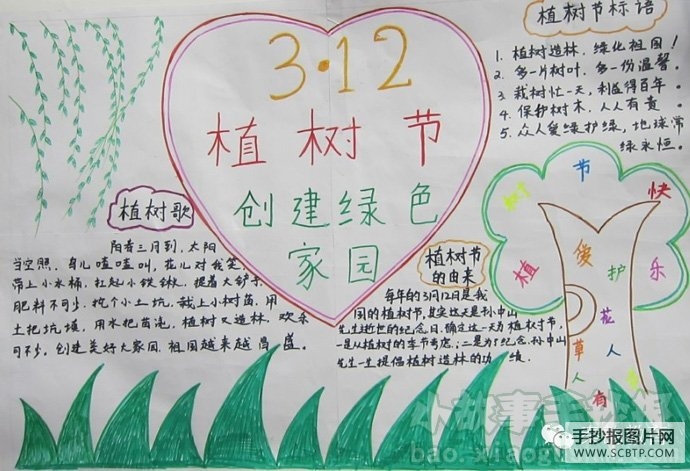 3·12
植树节
创建绿色
家园
植树节标语
1. 植树造林，绿化祖国！
2. 多一片树叶，多一份温馨。
3. 栽树忙一天，利益得百年。
4. 保护树木，人人有责。
5. 众人爱绿护绿，地球常
绿永恒。
植树歌
阳春三月到，太阳
当空照，鸟儿喳喳叫，花儿对我笑
带上小水桶，扛起小铁锹，提着大铲子
肥料不可少，挖个小土坑，栽上小树苗，用
土把坑填，用水把苗浇，植树又造林，欢乐
可不少，创建美好大家园，祖国越来越昌盛。
植树节
的由来
每年的3月12日是我
国的植树节，其实这天是孙中山
先生逝世的纪念日，确定这一天为植树节，
一是从植树的季节考虑；二是为了纪念孙中山
先生一生提倡植树造林的功绩
植树节快乐
爱护花草人人有
小故事手抄报
bao.xiao
手抄报图片网
www.SCBTP.COM